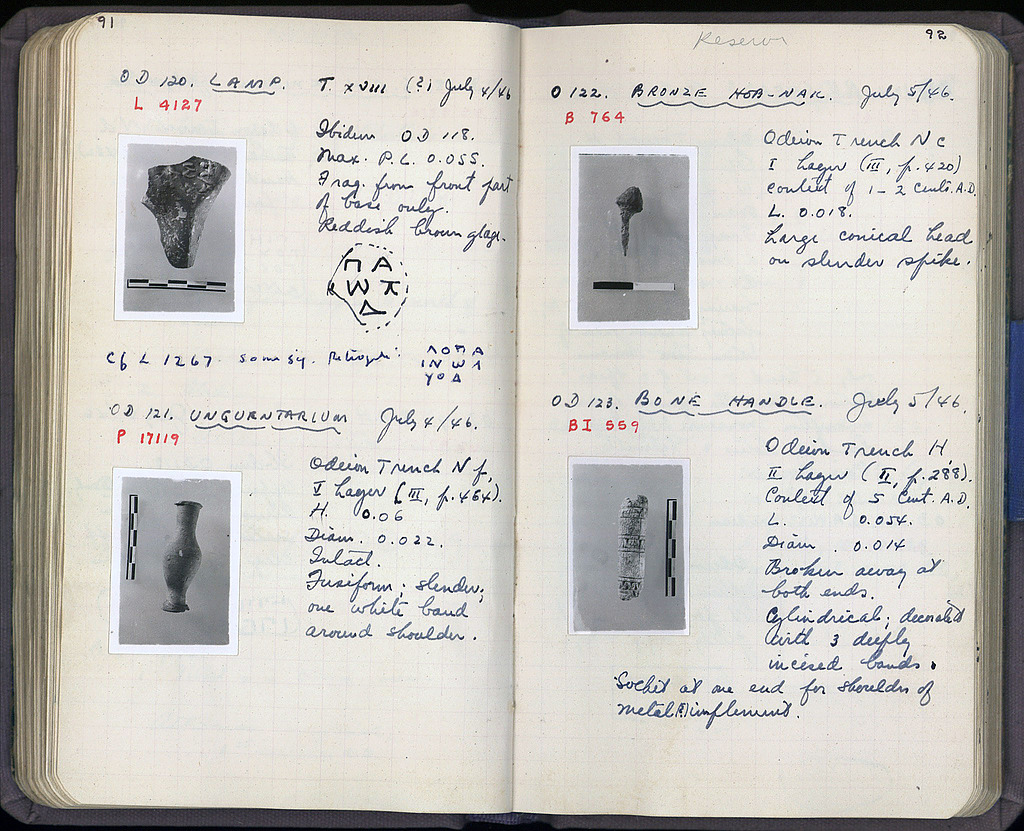 91
OD 120. LAMP. T. XVIII (?) July 4/46
L 4127
Ibidem OD 118.
Max. P.L. 0.055.
Frag. from front part
of base only.
Reddish brown glaze.
ΠΑ
Ѡ Π
Δ
Cf L 1267 same sig.
ΛΟΠΑ
ΙΝѠΛ
ΥΟΔ
OD 121. UNGUENTARIUM July 4/46.
P 17119
Odeion Trench N f,
V Layer (III, p. 464).
H. 0.06
Diam. 0.022.
Intact.
Fusiform; slender;
one white band
around shoulder.
92
Reserv
O 122. BRONZE HOB-NAIL. July 5/46.
B 764
Odeion Trench N c
I Layer (III, p. 420)
context of 1-2 Cents. A.D.
L. 0.018.
Large conical head
on slender spike.
OD 123. BONE HANDLE. July 5/46.
BI 559
Odeion Trench H,
II Layer (II, p. 288).
Context of 5 Cent. A.D.
L. 0.054.
Diam. 0.014
Broken away at
both ends.
Cylindrical; decorated
with 3 deeply
incised bands.
Socket at one end for shoulder of
metal (?) implement.